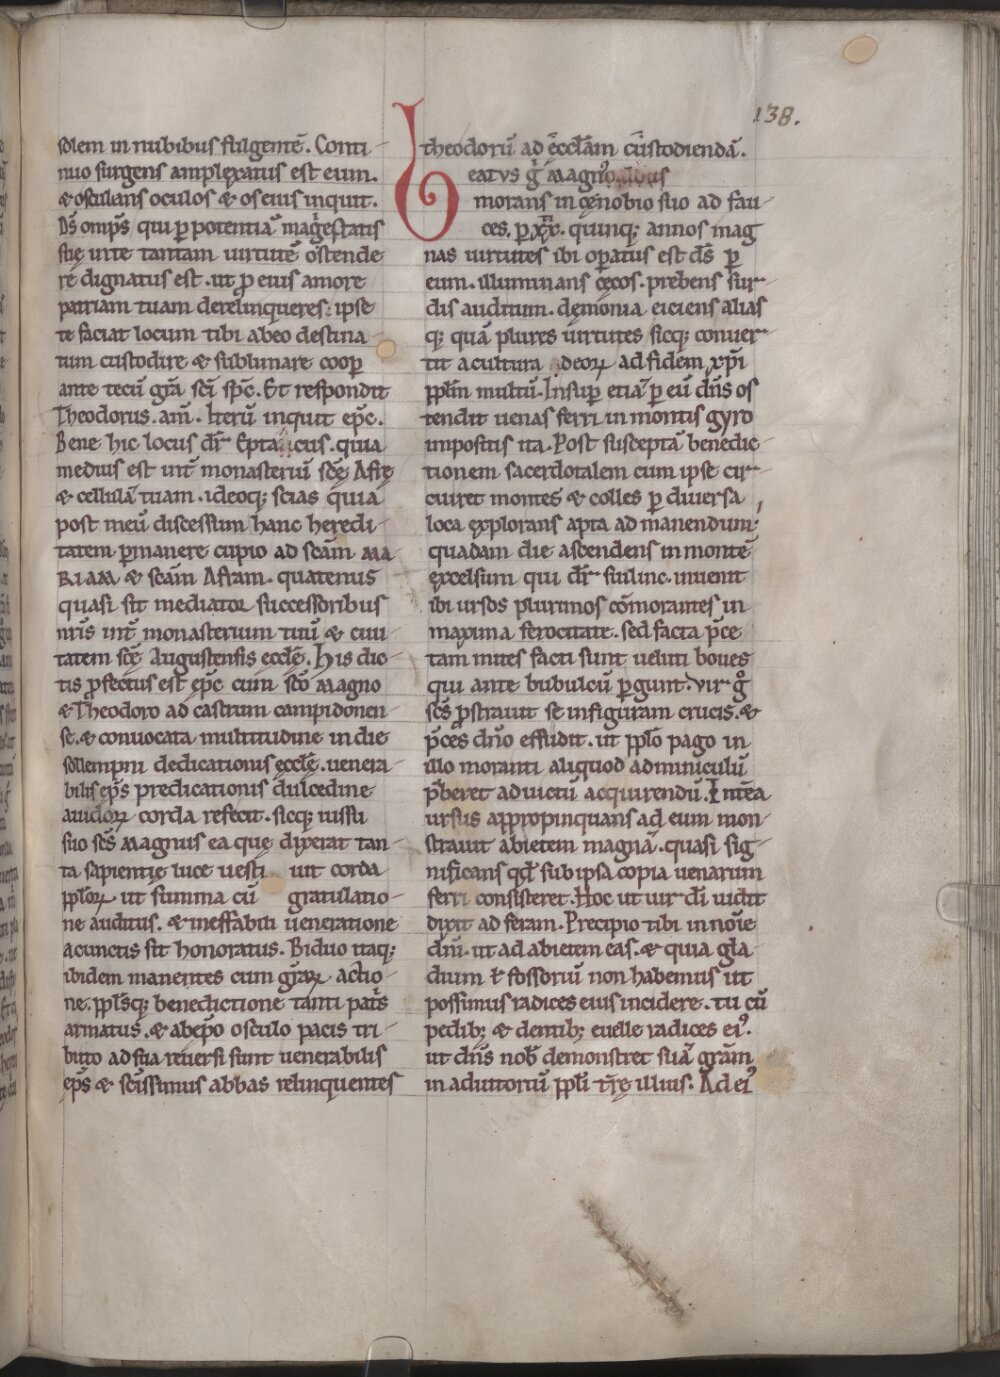 138.
solem in nubibus fulgentē. Conti-
nuo surgens amplexatus est eum.
& osculans oculos & os eius inquit.
D̄s omp̄s qui p̱ potentiā magestatis
suę in te tantam uirtutē ostende-
re dignatus est. ut ꝓ eius amore
patriam tuam derelinqueres: ipse
te faciat locum tibi a beo destina-
tum custodire & sublimare coop̱
ante tecū gr̄a sc̄i sp̄c. Et respondit
Theodorus. am̄. Iterū inquit ep̄c.
Bene hic locus dr̄ Epta cus. quia
medius est int̄ monasteriū sc̄ę Afrę
& cellulā tuam. ideoq; scias quia
post meū discessum hanc heredi-
tatem p̱manere cupio ad sc̄am MA-
RIAM & sc̄am Afram. quatenus
quasi sit mediator successoribus
nr̄is int̄ monasterium tuū & ciui-
tatem sc̄ę Augustensis eccłę. His dic-
tis ꝓfectus est ep̄c cum sc̄o Magno
& Theodoro ad castrum campidonen-
se. & conuocata multitudine in die
sollempni dedicationis eccłę. uenera-
bilis ep̄s predicationis dulcedine
auidoꝝ corda refecit. sicq; iussu
suo sc̄s Magnus ea quę dixerat tan-
ta sapientię luce uesti uit corda
pp̄loꝝ. ut summa cū gratulatio-
ne auditus. & ineffabili ueneratione
a cunctis sit honoratus. Biduo itaq;
ibidem manentes cum gr̄aꝝ actio-
ne. pp̄lsq; benedictione tanti pat̄s
armatus. & ab ep̄o osculo pacis tri-
buto ad sua reuersi sunt uenerabilis
ep̄s & sc̄issimus abbas relinquentes
Theodorū ad ęccl̄am custodiendā.
Beatus g̊ Magnus
morans in cęnobio suo ad fau-
ces. p̱ xx. quinq; annos mag
nas uirtutes ibi op̱atus est d̄s p̱
eum. illuminans cęcos. prebens sur-
dis auditum. demonia eiciens alias
q; quā plures uirtutes sicq; conuer-
tit a cultura deoꝝ ad fidem xp̄i
pp̄lm multū. Insup̱ etiā p̱ eū dn̄s os
tendit uenas ferri in montis gyro
impositis ita. Post susceptā benedic-
tionem sacerdotalem cum ipse cir-
cuiret montes & colles p̱ diuersa
loca explorans apta ad manendum;
quadam die ascendens in montē
excelsum qui dr̄ suilinc. inuenit
ibi ursos plurimos cōmorantes in
maxima ferocitate. sed facta p̄ce
tam mites facti sunt ueluti boues
qui ante bubulcū p̱gunt. Vir g̊
sc̄s p̱strauit se in figuram crucis. &
p̄ces dn̄o effudit. ut pp̄lo pago in
illo moranti aliquod adminiculū
p̄beret ad uictū acquirendū. Int̄ea
ursus appropinquans ad eum mon-
strauit abietem magnā. quasi sig-
nificans qd̄ sub ipsa copia uenarum
ferri consisteret. Hoc ut uir dī uidit
dixit ad feram. Precipio tibi in noīe
dn̄i. ut ad abietem eas. & quia gla-
dium ł fossoriū non habemus ut
possimus radices eius incidere. tu cū
pedib; & dentib; euelle radices ei᾽.
ut dn̄s nob̄ demonstret suā gr̄am
in adiutoriū pp̄li tr̄ę illius. Ad ei᾽